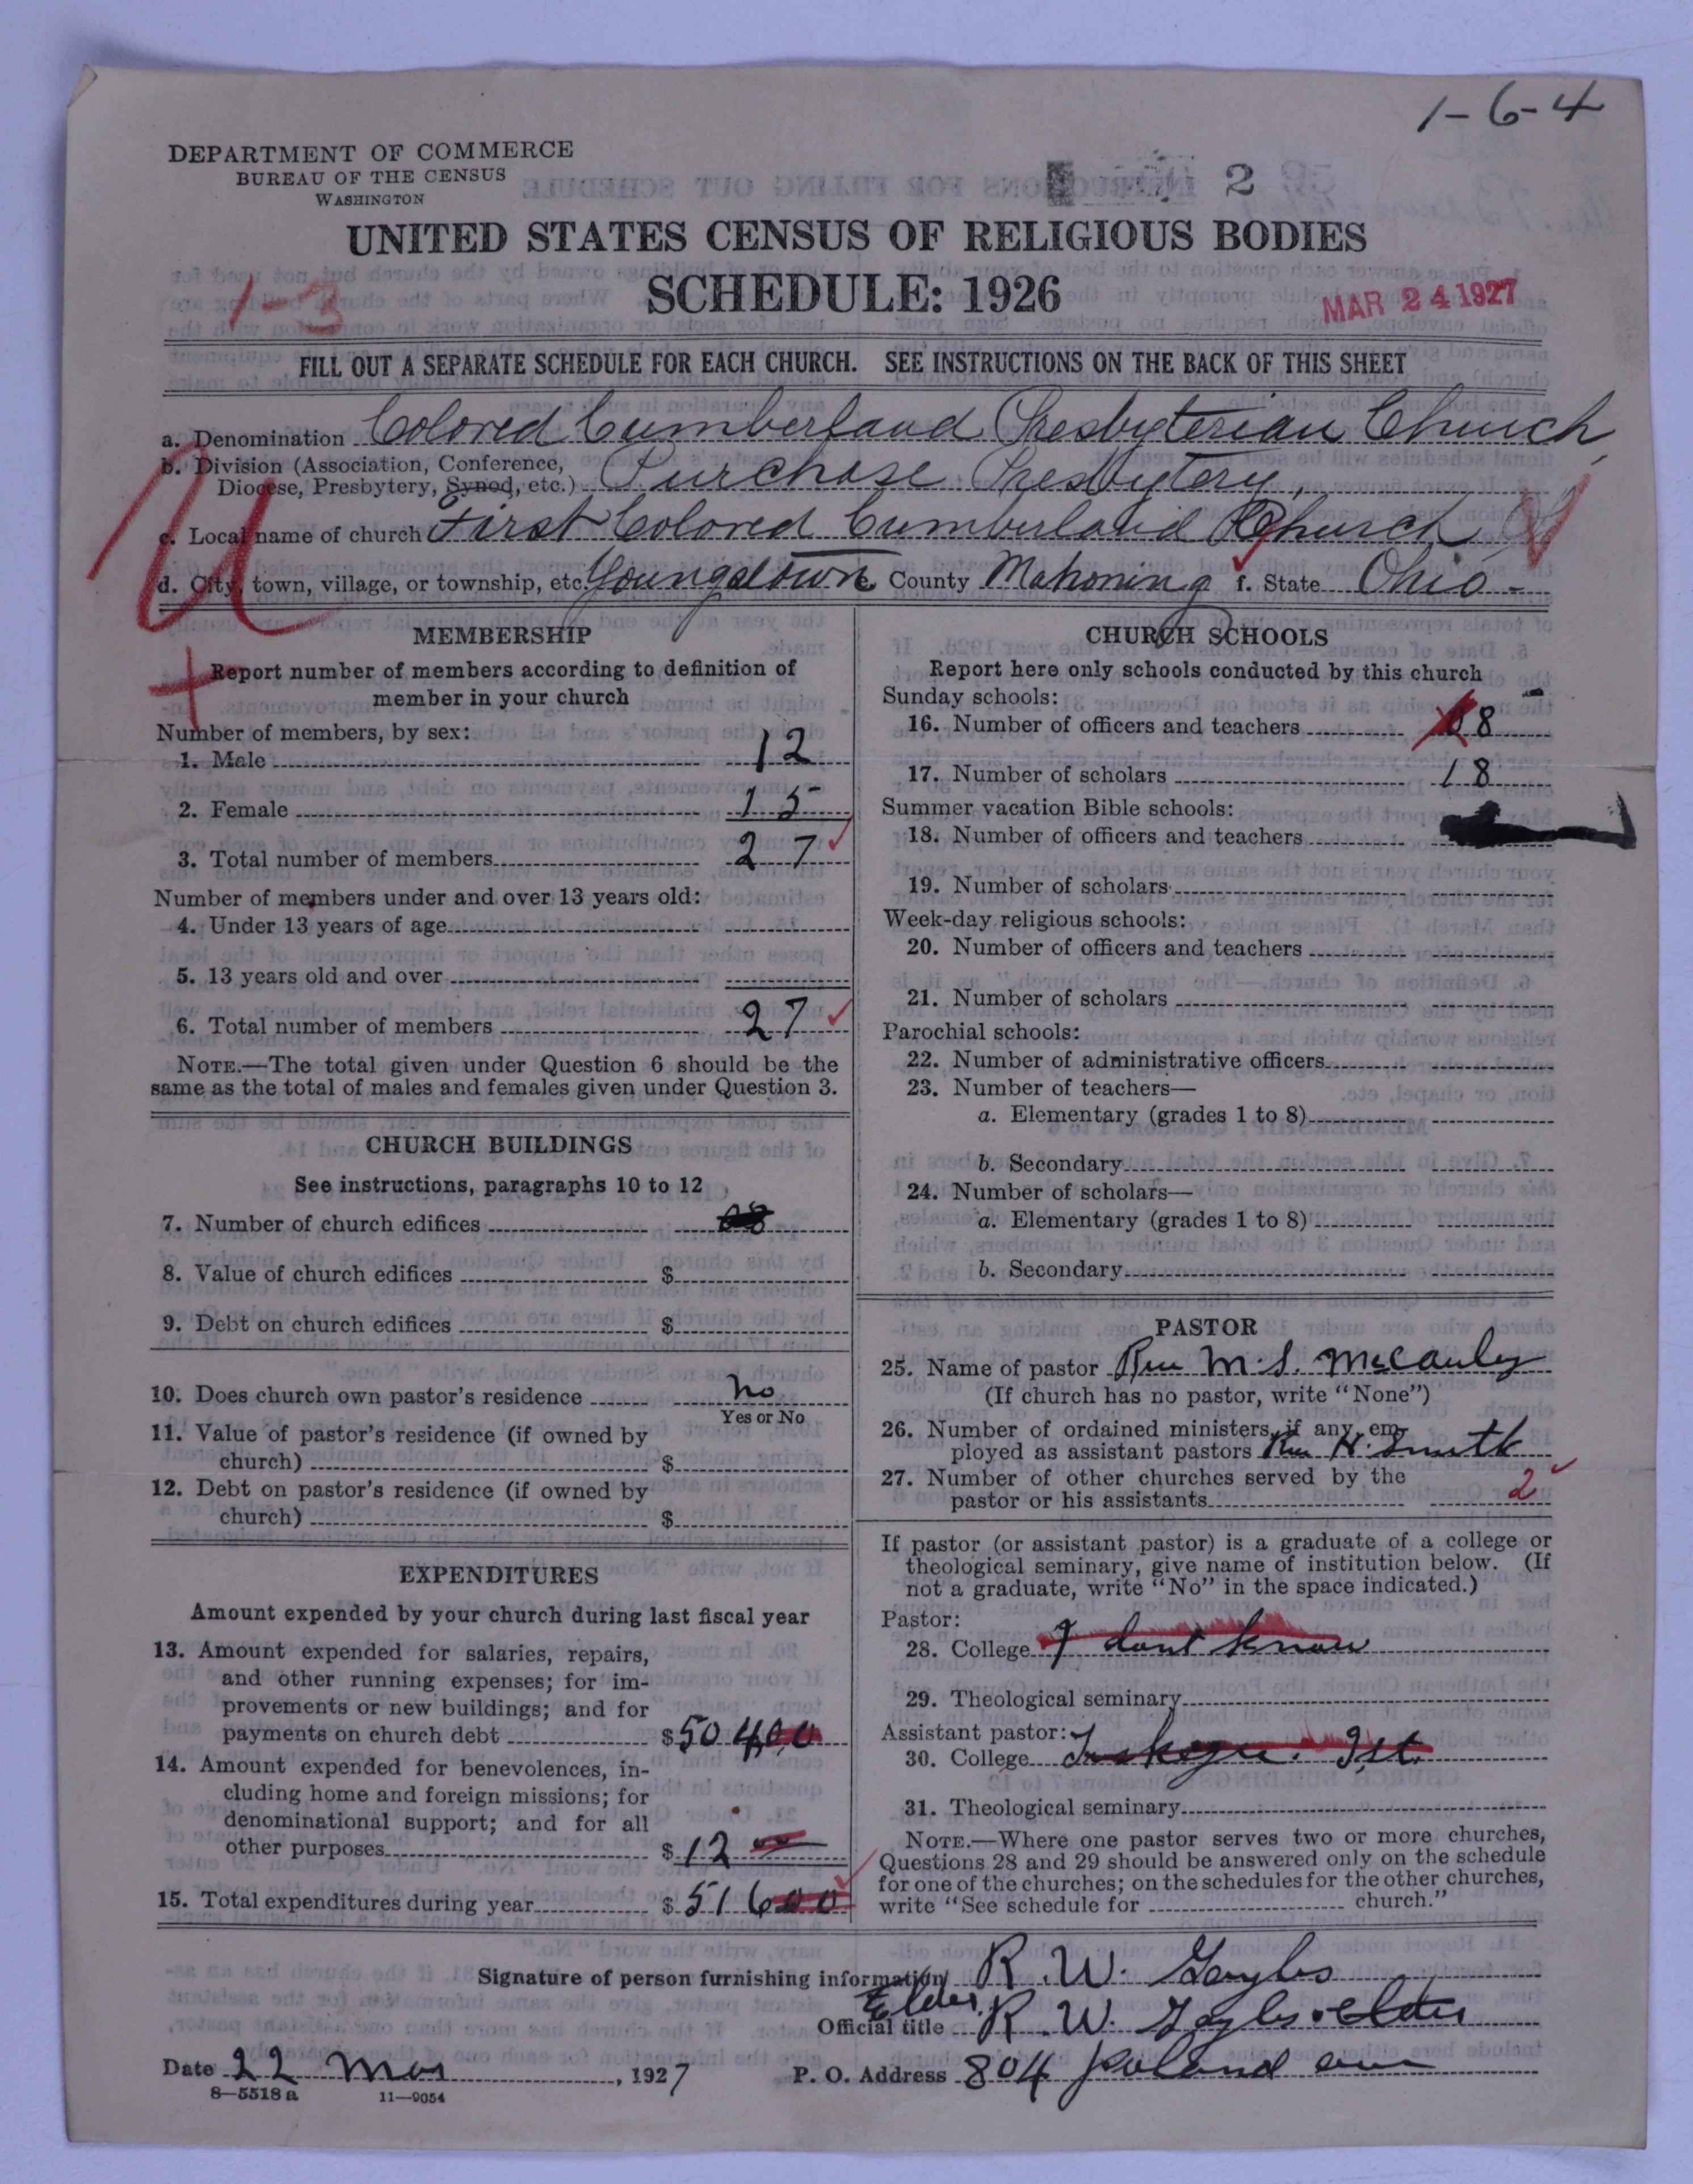 1-6-4
DEPARTMENT OF COMMERCE
BUREAU OF THE CENSUS
WASHINGTON
2
UNITED STATES CENSUS OF RELIGIOUS BODIES
SCHEDULE: 1926
1-3
MAR 24 1927
FILL OUT A SEPARATE SCHEDULE FOR EACH CHURCH. SEE INSTRUCTIONS ON THE BACK OF THIS SHEET
a. Denomination Colored Cumberland Presbyterian Church,
b. Division (Association, Conference, Diocese, Presbytery, Synod, etc.) Purchase Presbytery,
c. Local name of church First Colored Cumberland Church
d. City, town, village, or township, etc. Youngstown e. County Mahoning f. State Ohio -
MEMBERSHIP
Report number of members according to definition of
member in your church
Number of members, by sex:
1. Male 12
2. Female 15
3. Total number of members 27
Number of members under and over 13 years old:
4. Under 13 years of age
5. 13 years old and over
6. Total number of members 27
NOTE.—The total given under Question 6 should be the
same as the total of males and females given under Question 3.
CHURCH BUILDINGS
See instructions, paragraphs 10 to 12
7. Number of church edifices
8. Value of church edifices $
9. Debt on church edifices $
10. Does church own pastor's residence no
Yes or No
11. Value of pastor's residence (if owned by
church) $
12. Debt on pastor's residence (if owned by
church) $
EXPENDITURES
Amount expended by your church during last fiscal year
13. Amount expended for salaries, repairs,
and other running expenses; for im-
provements or new buildings; and for
payments on church debt $504 00
14. Amount expended for benevolences, in-
cluding home and foreign missions; for
denominational support; and for all
other purposes $12 00
15. Total expenditures during year $516 00
CHURCH SCHOOLS
Report here only schools conducted by this church
Sunday schools:
16. Number of officers and teachers 8
17. Number of scholars 18
Summer vacation Bible schools:
18. Number of officers and teachers
19. Number of scholars
Week-day religious schools:
20. Number of officers and teachers
21. Number of scholars
Parochial schools:
22. Number of administrative officers
23. Number of teachers—
a. Elementary (grades 1 to 8)
b. Secondary
24. Number of scholars—
a. Elementary (grades 1 to 8)
b. Secondary
PASTOR
25. Name of pastor Rev M.S. McCauley
(If church has no pastor, write "None")
26. Number of ordained ministers, if any, em-
ployed as assistant pastors Rev H. Smith
27. Number of other churches served by the
pastor or his assistants 2
If pastor (or assistant pastor) is a graduate of a college or
theological seminary, give name of institution below. (If
not a graduate, write "No" in the space indicated.)
Pastor:
28. College I dont know
29. Theological seminary
Assistant pastor:
30. College Tuskegee. Ist.
31. Theological seminary
NOTE.—Where one pastor serves two or more churches,
Questions 28 and 29 should be answered only on the schedule
for one of the churches; on the schedules for the other churches,
write "See schedule for church."
Signature of person furnishing information R.W. Gayles
Elder,
Official title R.W. Gayles. elder
Date 22 Mar, 1927 P. O. Address 804 poland ave
8—5518 a 11—9054